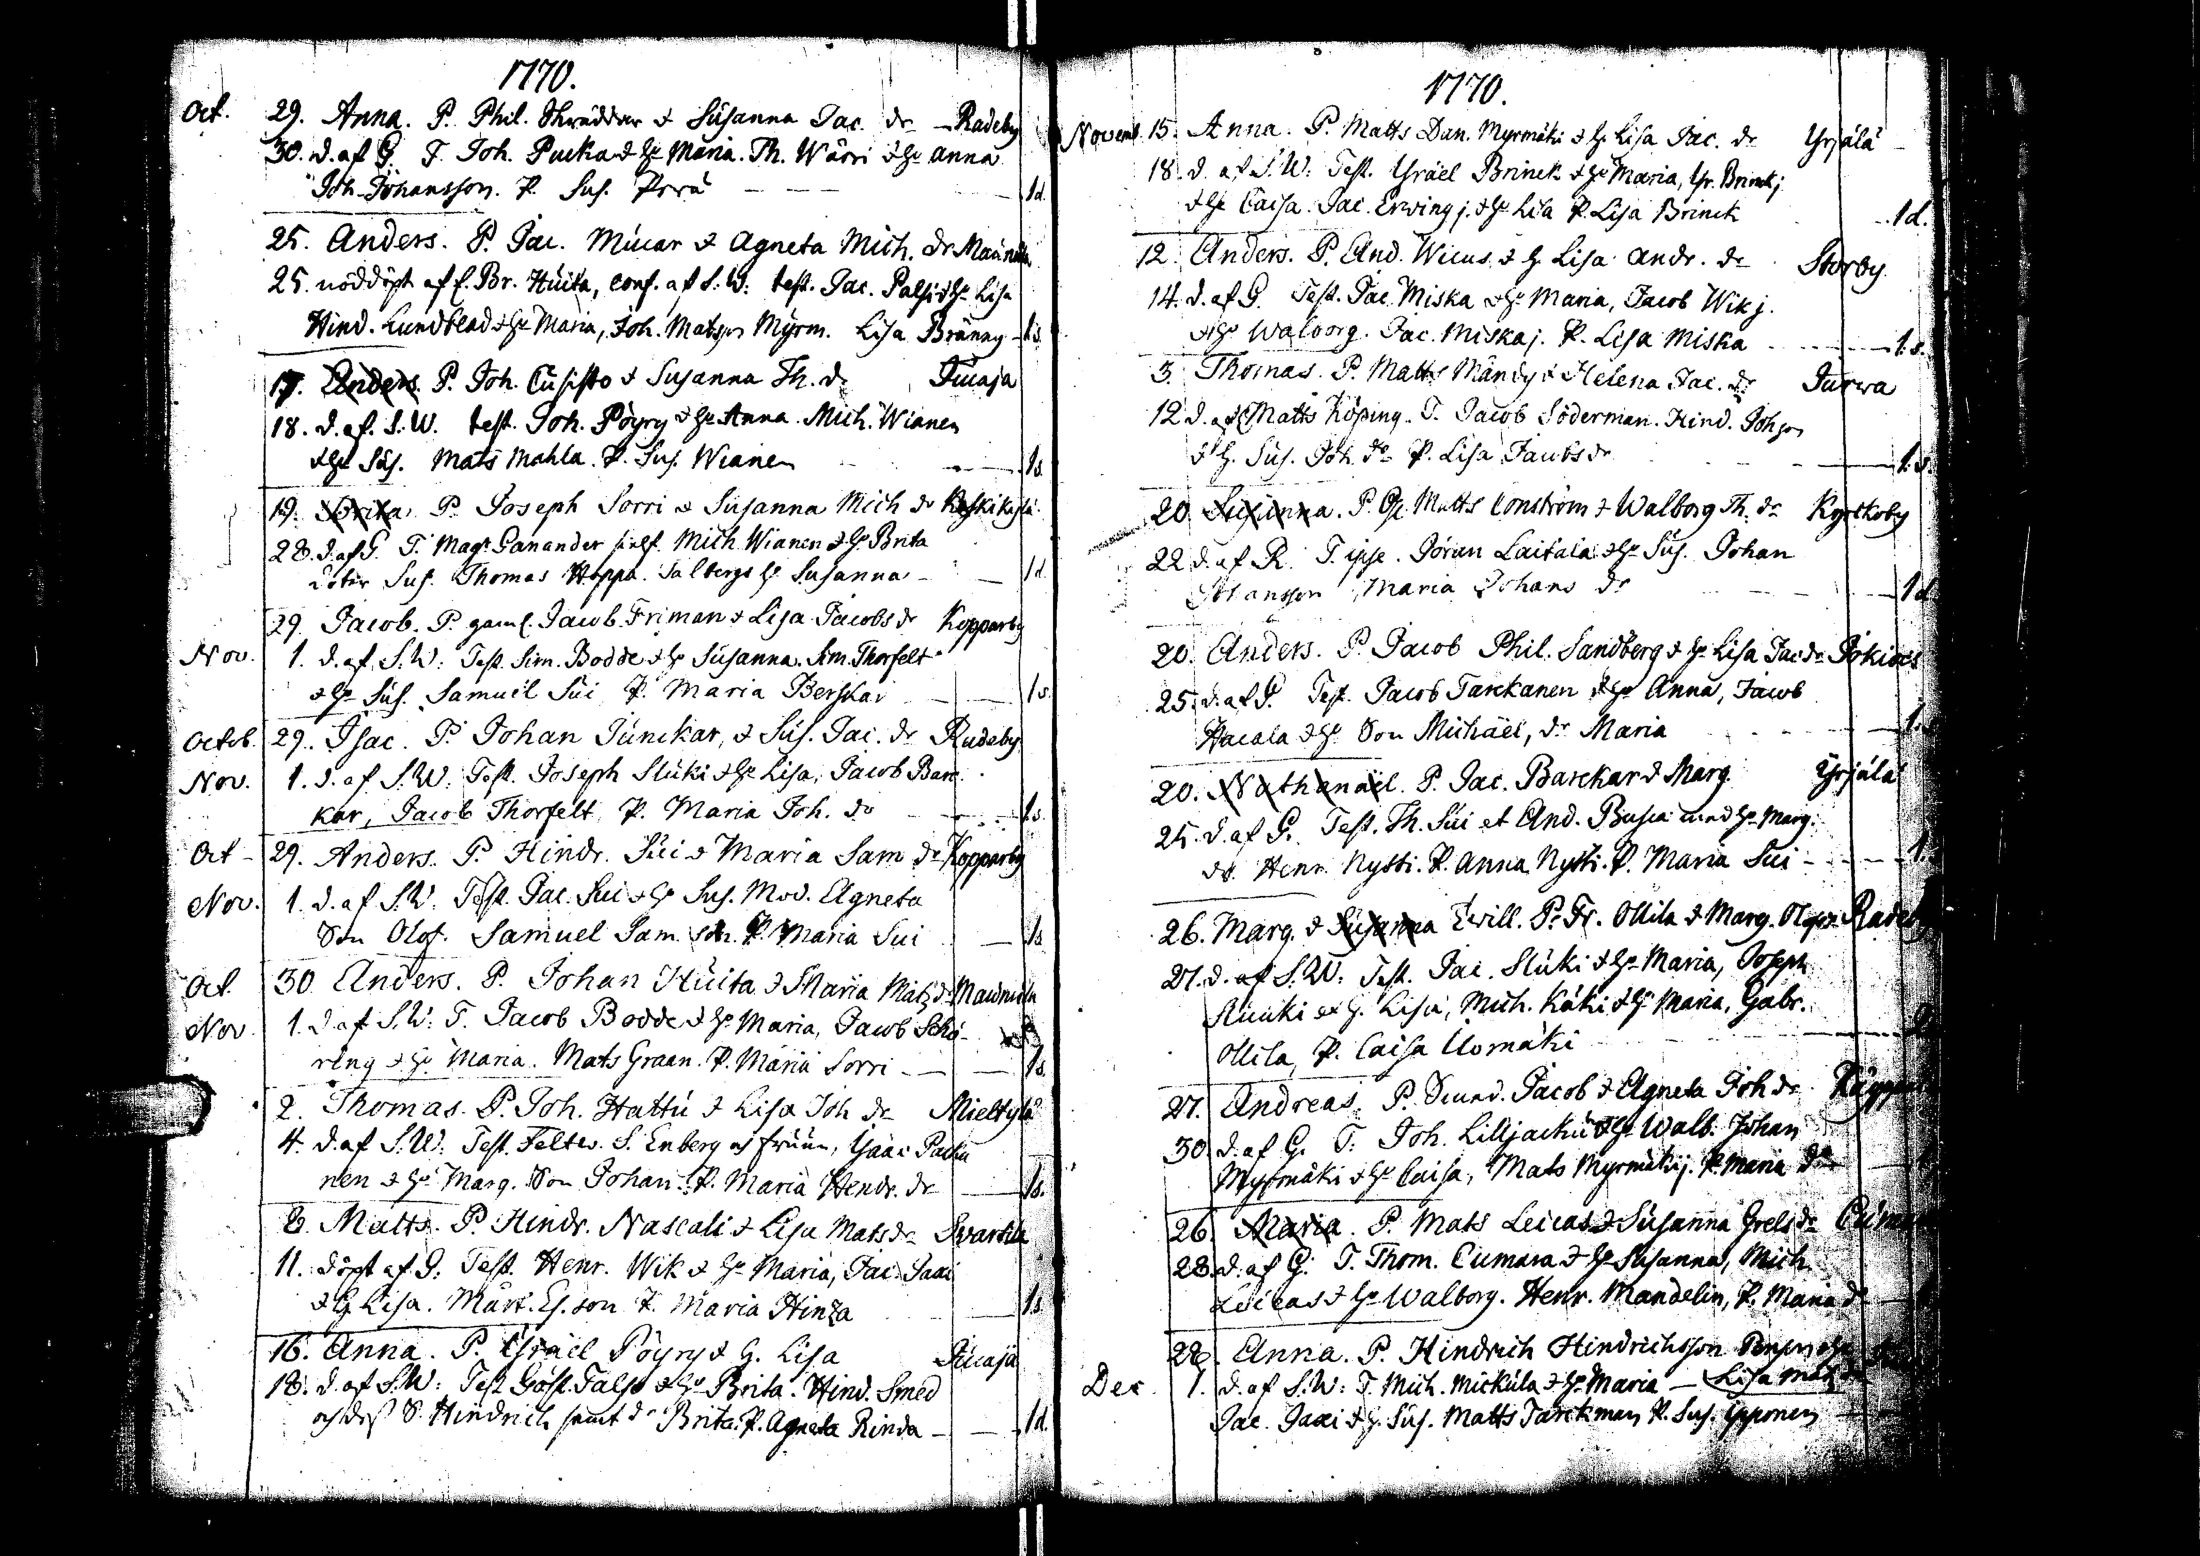 1770.
Oct. 29. Anna. P. Phil. Skräddar & Susanna Jac. dr Radeby
30. d. af G. T. Joh. Pucka & hu Maria. Th. Wärri & hu Anna
Joh. Johansson. P. Sus. 1d.
25. Anders. P. Jac. Mucar & Agneta Mich. dr
25. nöddöpt af f. Br. Huita, conf. af S. W: test. Jac. Palsi & hu Lisa
Hind. Lundblad & hu Maria, Joh. Matsson Myrm. Lisa Bränny 1s.
17. Anders P. Joh. Cusisto & Susanna Th. dr Jucaja
18. d. af. S. W. test. Joh. Pöyry & hu Anna. Mich. Wianen
& hu Sus. Mats Mahla. P. Sus. Wianen 1s.
19. Brita, P. Joseph Sorri & Susanna Mich dr Keskikylä
28. d. af G. T. Magr Ganander sielf. Mich. Wianen & hu Brita
doter Sus. Thomas Hoppa. Salbergs h. Susanna 1d.
29. Jacob. P. gaml. Jacob Friman & Lisa Jacobs dr Kopparby
Nov. 1. d. af S. W: Test. Sim. Bodde & hu Susanna. Sim. Thorfelt
& hu Sus. Samuel Sui P. Maria Berskar 1s.
Octob. 29. Isac. P. Johan Junckar, & Sus. Jac. dr Radeby
Nov. 1. d. af S. W: Test. Joseph Sluki & hu Lisa, Jacob Barc-
kar, Jacob Thorfelt P. Maria Joh. dr 1s.
Oct 29. Anders. P. Hindr. Sui & Maria Sam dr Kopparby
Nov. 1. d. af S. W. Test. Jac. Sui & hu Sus. Mod. Agneta
Son Olof. Samuel Sam. son. P. Maria Sui 1s
Oct. 30 Anders. P. Johan Huita & Maria Mats dr Maunula
Nov 1. d. af S. W: T. Jacob Bodde & hu Maria, Jacob Schö-
ring & hu Maria. Mats Graan. P. Maria Sorri 1s.
2. Thomas. P. Joh. Hattu & Lisa Joh dr Mieltylä
4. d. af S. W: Test. Feltw. S. Enberg och fruun, Isaac Pacha
nen & hu Marg. Son Johan. P. Maria Hendr. dr 1s.
8. Matts. P. Hindr. Nascali & Lisa Mats dr Swartila
11. döpt af G: Test. Henr. Wik & hu Maria, Jac. Jaaci
& h. Lisa. Mårt. Es. son P. Maria Hinza 1s.
16. Anna. P. Israel Pöyry & h. Lisa Jucaja
18. d. af S. W: Test. Gäst. Falss & hu Brita. Hind. Smed
och dess S. Hindrich samt dr Brita. P. Agneta Rinda 1d.
1770.
Novemb. 15. Anna. P. Matts Dan. Myrmäki & h. Lisa Jac. dr Yrjälä
18. d. af S. W: Test. Israel Brinck & hu Maria, Isr. Brinck j.
& hu Caisa. Jac. Erwing j. & hu Lisa P. Lisa Brinck 1d.
12. Anders. P. And. Wicus & h. Lisa Andr. dr Storby.
14. d. af G. Test. Jac. Miska & hu Maria, Jacob Wik j.
& hu Walborg. Jac. Miska j. P. Lisa Miska 1.s.
3. Thomas. P. Matts Mändy & Helena Jac. dr Jurwa
12 d. af Matts Köping. T. Jacob Söderman. Hind. Johson
& h. Sus. Joh. dr P. Lisa Jacobs dr 1.s.
20 Susanna. P. Matts Conström & Walborg Th. dr Kyrckoby
22 d. af R. T. ipse. Jöran Laitala & hu Sus. Johan
Johansson Maria Johans dr 1d
20. Anders. P. Jacob Phil. Sandberg & hu Lisa Jac dr
25. d. af G. Test. Jacob Tarckanen & hu Anna, Jacob
Hacala & hu Son Michäel, dr Maria 1.s
20. Nathanäel. P. Jac. Barckar & Marg. Yrjälä
25. d. af G. Test. Th. Sui et And. Busca med hu Marg.
do Henr. Nysti. P. Anna Nysti. P. Maria Sui 1.
26. Marg. & Susanna Twill. P. Fr. Ollila & Marg. Olofs dr Radeby
27. d. af S. W: Test. Jac. Sluki & hu Maria, Joseph
Sluuki & h. Lisa, Mich. Käki & hu Maria, Gabr.
Ollila, P. Caisa Uomäki 2
27. Andreas. P. Sund. Jacob & Agneta Joh dr
30. d. af G. T. Joh. Lilljachu & hu Walb. Johan
Myrmäki & hu Caisa, Mats Myrmäki j. P. Maria dr
26. Maria. P. Mats Leicas & Susanna Grels dr
28. d. af G. T. Thom. Cumara & hu Susanna, Mich.
Leicas & hu Walborg. Henr. Mandelin, P. Maria dr
28. Anna. P. Hindrich Hindrichsson
Dec. 1. d. af S. W: T. Mich. Mickula & hu Maria — Lisa Mats dr
Jac. Jaaci & h. Sus. Matts Tarckman P. Sus. Ypponen